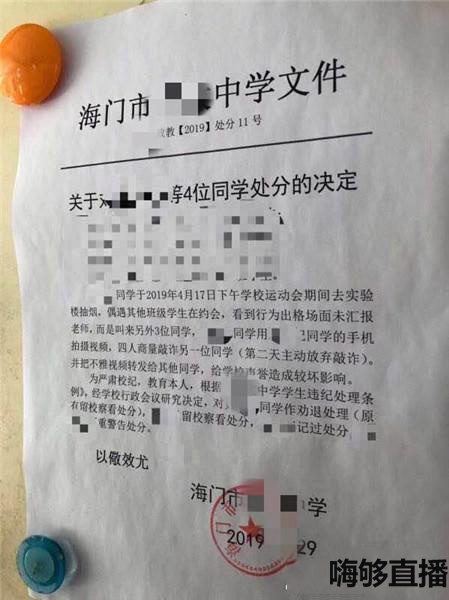 海门市 中学文件
教【2019】处分 11 号
关于 等4位同学处分的决定
同学于2019年4月17日下午学校运动会期间去实验
楼抽烟，偶遇其他班级学生在约会，看到行为出格场面未汇报
老师，而是叫来另外3位同学， 同学用 同学的手机
拍摄视频，四人商量敲诈另一位同学（第二天主动放弃敲诈）。
并把不雅视频转发给其他同学，给学校声誉造成较坏影响。
为严肃校纪，教育本人，根据 中学学生违纪处理条
例》，经学校行政会议研究决定，对 同学作劝退处理（原
有留校察看处分）， 留校察看处分， 记过处分
重警告处分。
以儆效尤
海门市 学
2019 29
嗨够直播